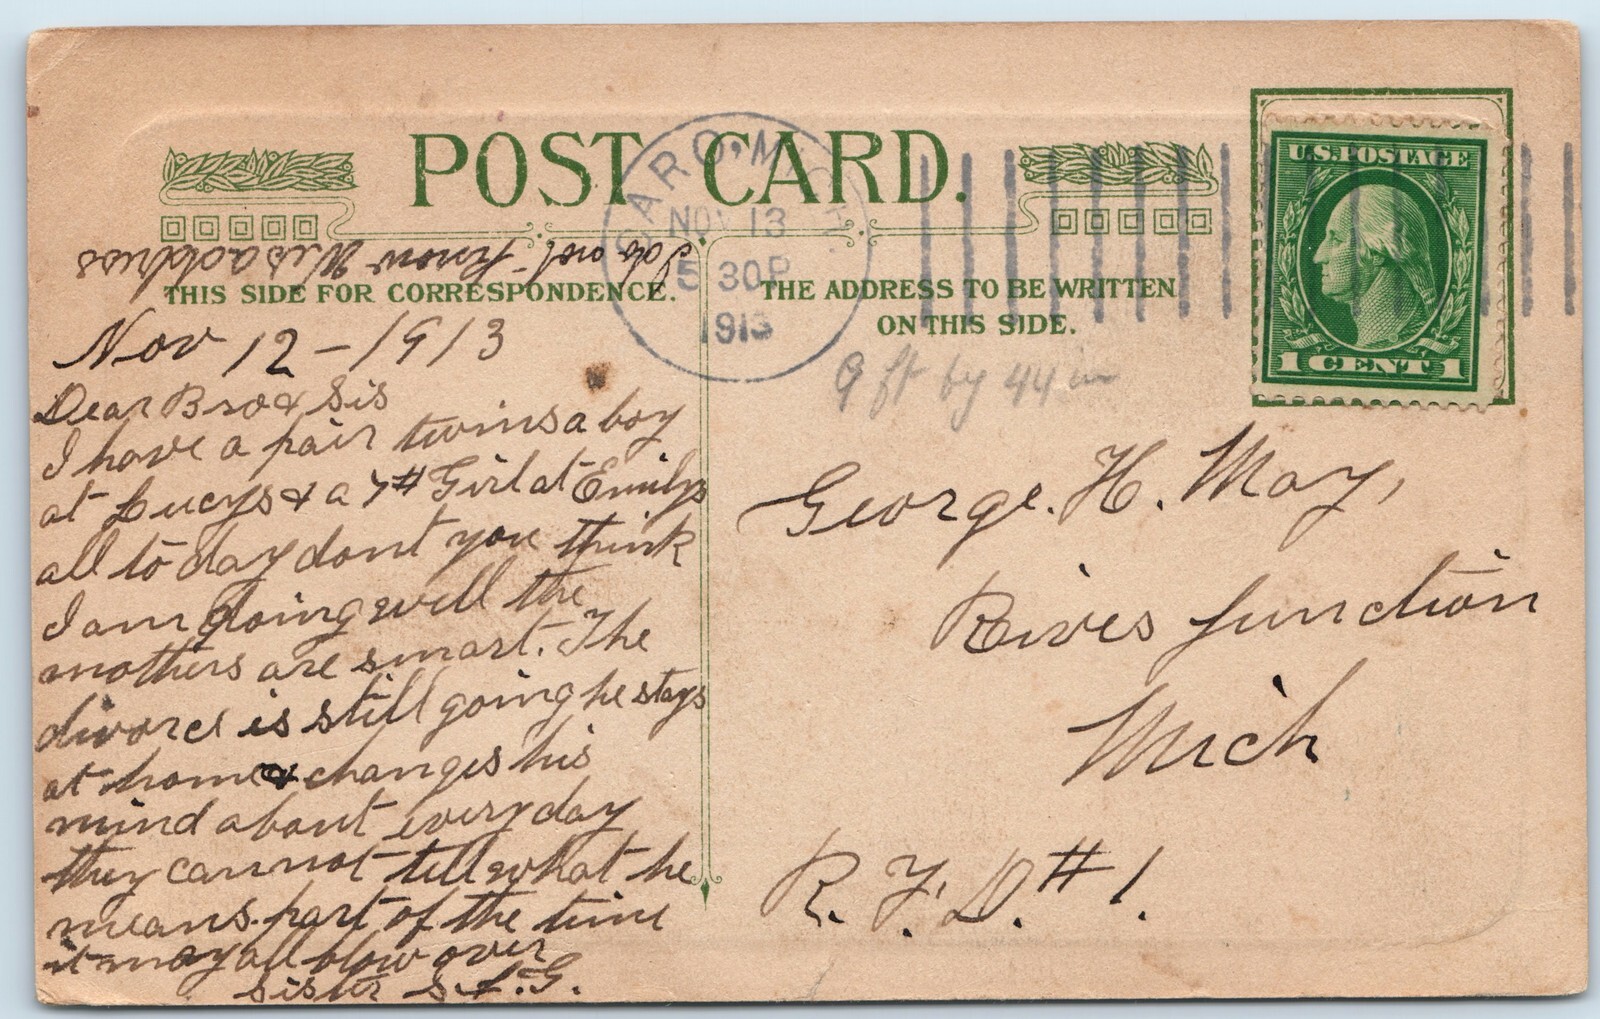 POST CARD.
CARO. MICH
NOV 13
5 30P
1913
U.S. POSTAGE
1 CENT 1
I do not know His address
THIS SIDE FOR CORRESPONDENCE.
THE ADDRESS TO BE WRITTEN
ON THIS SIDE.
9 ft by 44 in
Nov 12 - 1913
Dear Bro & Sis
I have a pair twins a boy
at Lucys & a 7# Girl at Emilys
all to day dont you think
I am doing well the
mothers are smart. The
divorce is still going he stays
at home & changes his
mind about every day
they cannot tell what he
means. part of the time
it may all blow over
Sister S. A. G.
George. H. May,
Rives Junction
Mich
R. F. D. # 1.